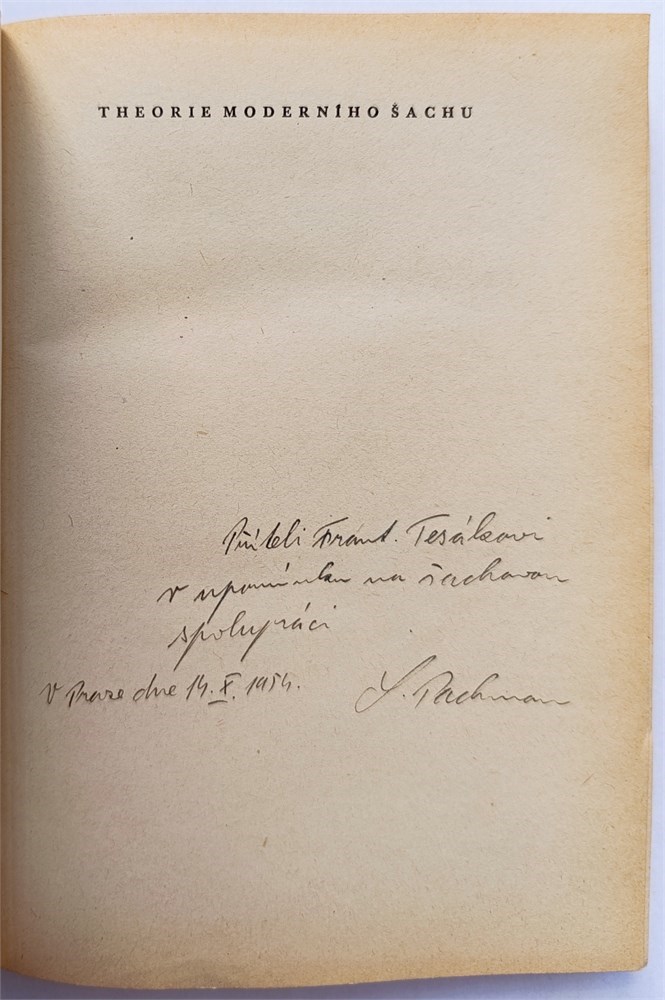 THEORIE MODERNÍHO ŠACHU
Příteli Frant. Tesálkovi
v upomínku na šachovou
spolupráci
V Praze dne 14. X. 1954.
L. Pachman